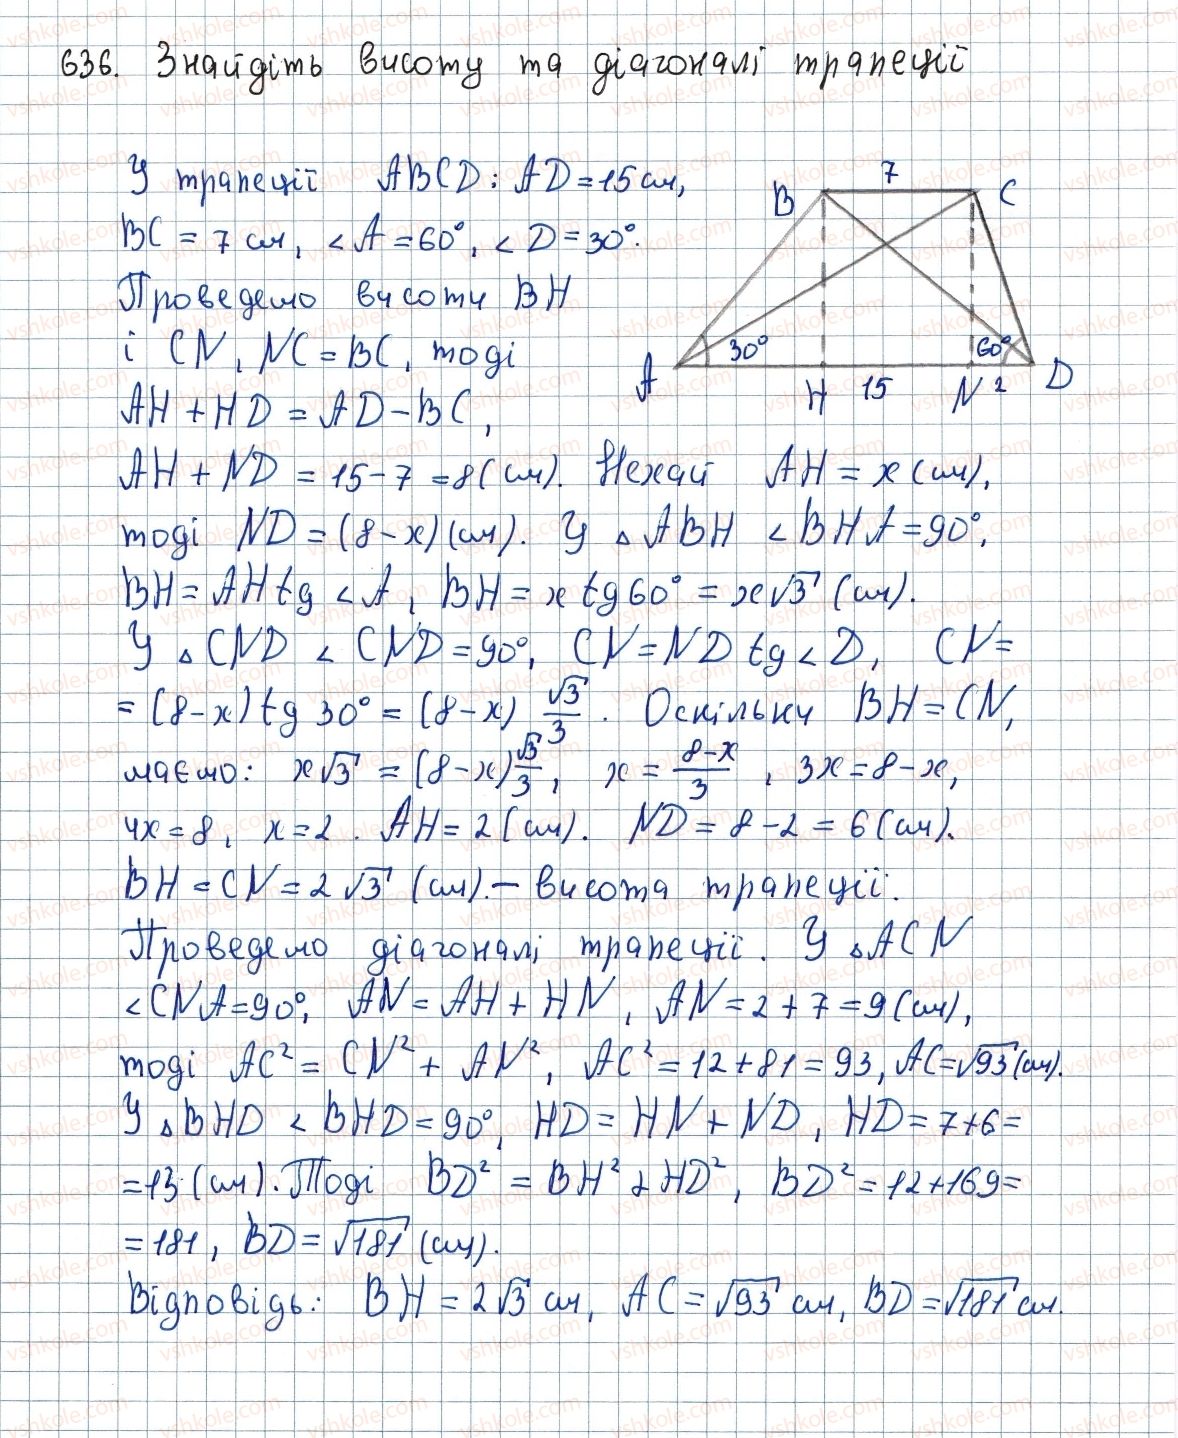 636. Знайдіть висоту та діагоналі трапеції
У трапеції ABCD: AD = 15 см,
BC = 7 см, ∠A = 60°, ∠D = 30°.
Проведемо висоти BH
і CN, NC = BC, тоді
AH + HD = AD - BC,
AH + ND = 15 - 7 = 8 (см). Нехай AH = x (см),
тоді ND = (8 - x) (см). У △ABH ∠BHA = 90°,
BH = AH tg ∠A, BH = x tg 60° = x√3 (см).
У △CND ∠CND = 90°, CN = ND tg ∠D, CN =
= (8 - x) tg 30° = (8 - x) √3/3. Оскільки BH = CN,
маємо: x√3 = (8 - x) √3/3, x = 8-x/3, 3x = 8 - x,
4x = 8, x = 2. AH = 2 (см). ND = 8 - 2 = 6 (см).
BH = CN = 2√3 (см). - висота трапеції.
Проведемо діагоналі трапеції. У △ACN
∠CNA = 90°, AN = AH + HN, AN = 2 + 7 = 9 (см),
тоді AC² = CN² + AN², AC² = 12 + 81 = 93, AC = √93 (см).
У △BHD ∠BHD = 90°, HD = HN + ND, HD = 7 + 6 =
= 13 (см). Тоді BD² = BH² + HD², BD² = 12 + 169 =
= 181, BD = √181 (см).
Відповідь: BH = 2√3 см, AC = √93 см, BD = √181 см.
B 7 C
30° 60°
A H 15 N 2 D
vshkole.com